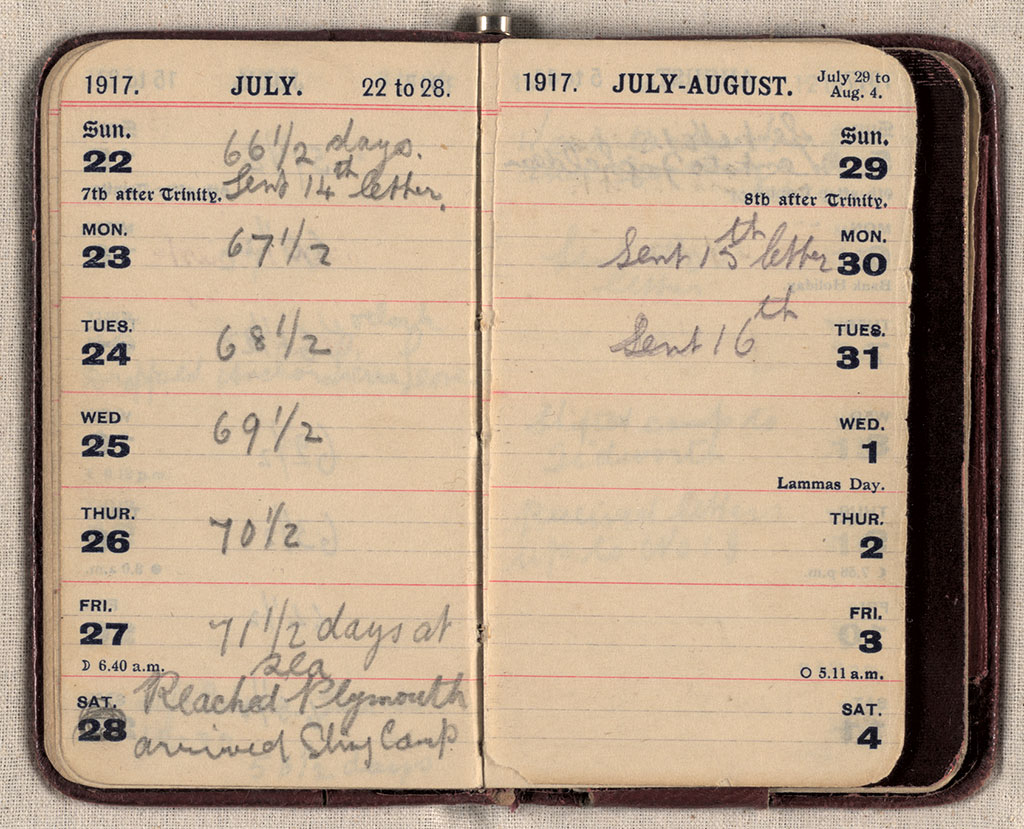 1917. JULY. 22 to 28.
Sun.
22 66 1/2 days.
7th after Trinity. Sent 14th letter.
MON.
23 67 1/2
TUES.
24 68 1/2
WED
25 69 1/2
THUR.
26 70 1/2
FRI.
27 71 1/2 days at
☽ 6.40 a.m. sea
SAT. Reached Plymouth
28 arrived Sling Camp
1917. JULY-AUGUST. July 29 to
Aug. 4.
Sun.
29
8th after Trinity.
MON.
Sent 15th letter 30
TUES.
Sent 16th 31
WED.
1
Lammas Day.
THUR.
2
FRI.
3
○ 5.11 a.m.
SAT.
4